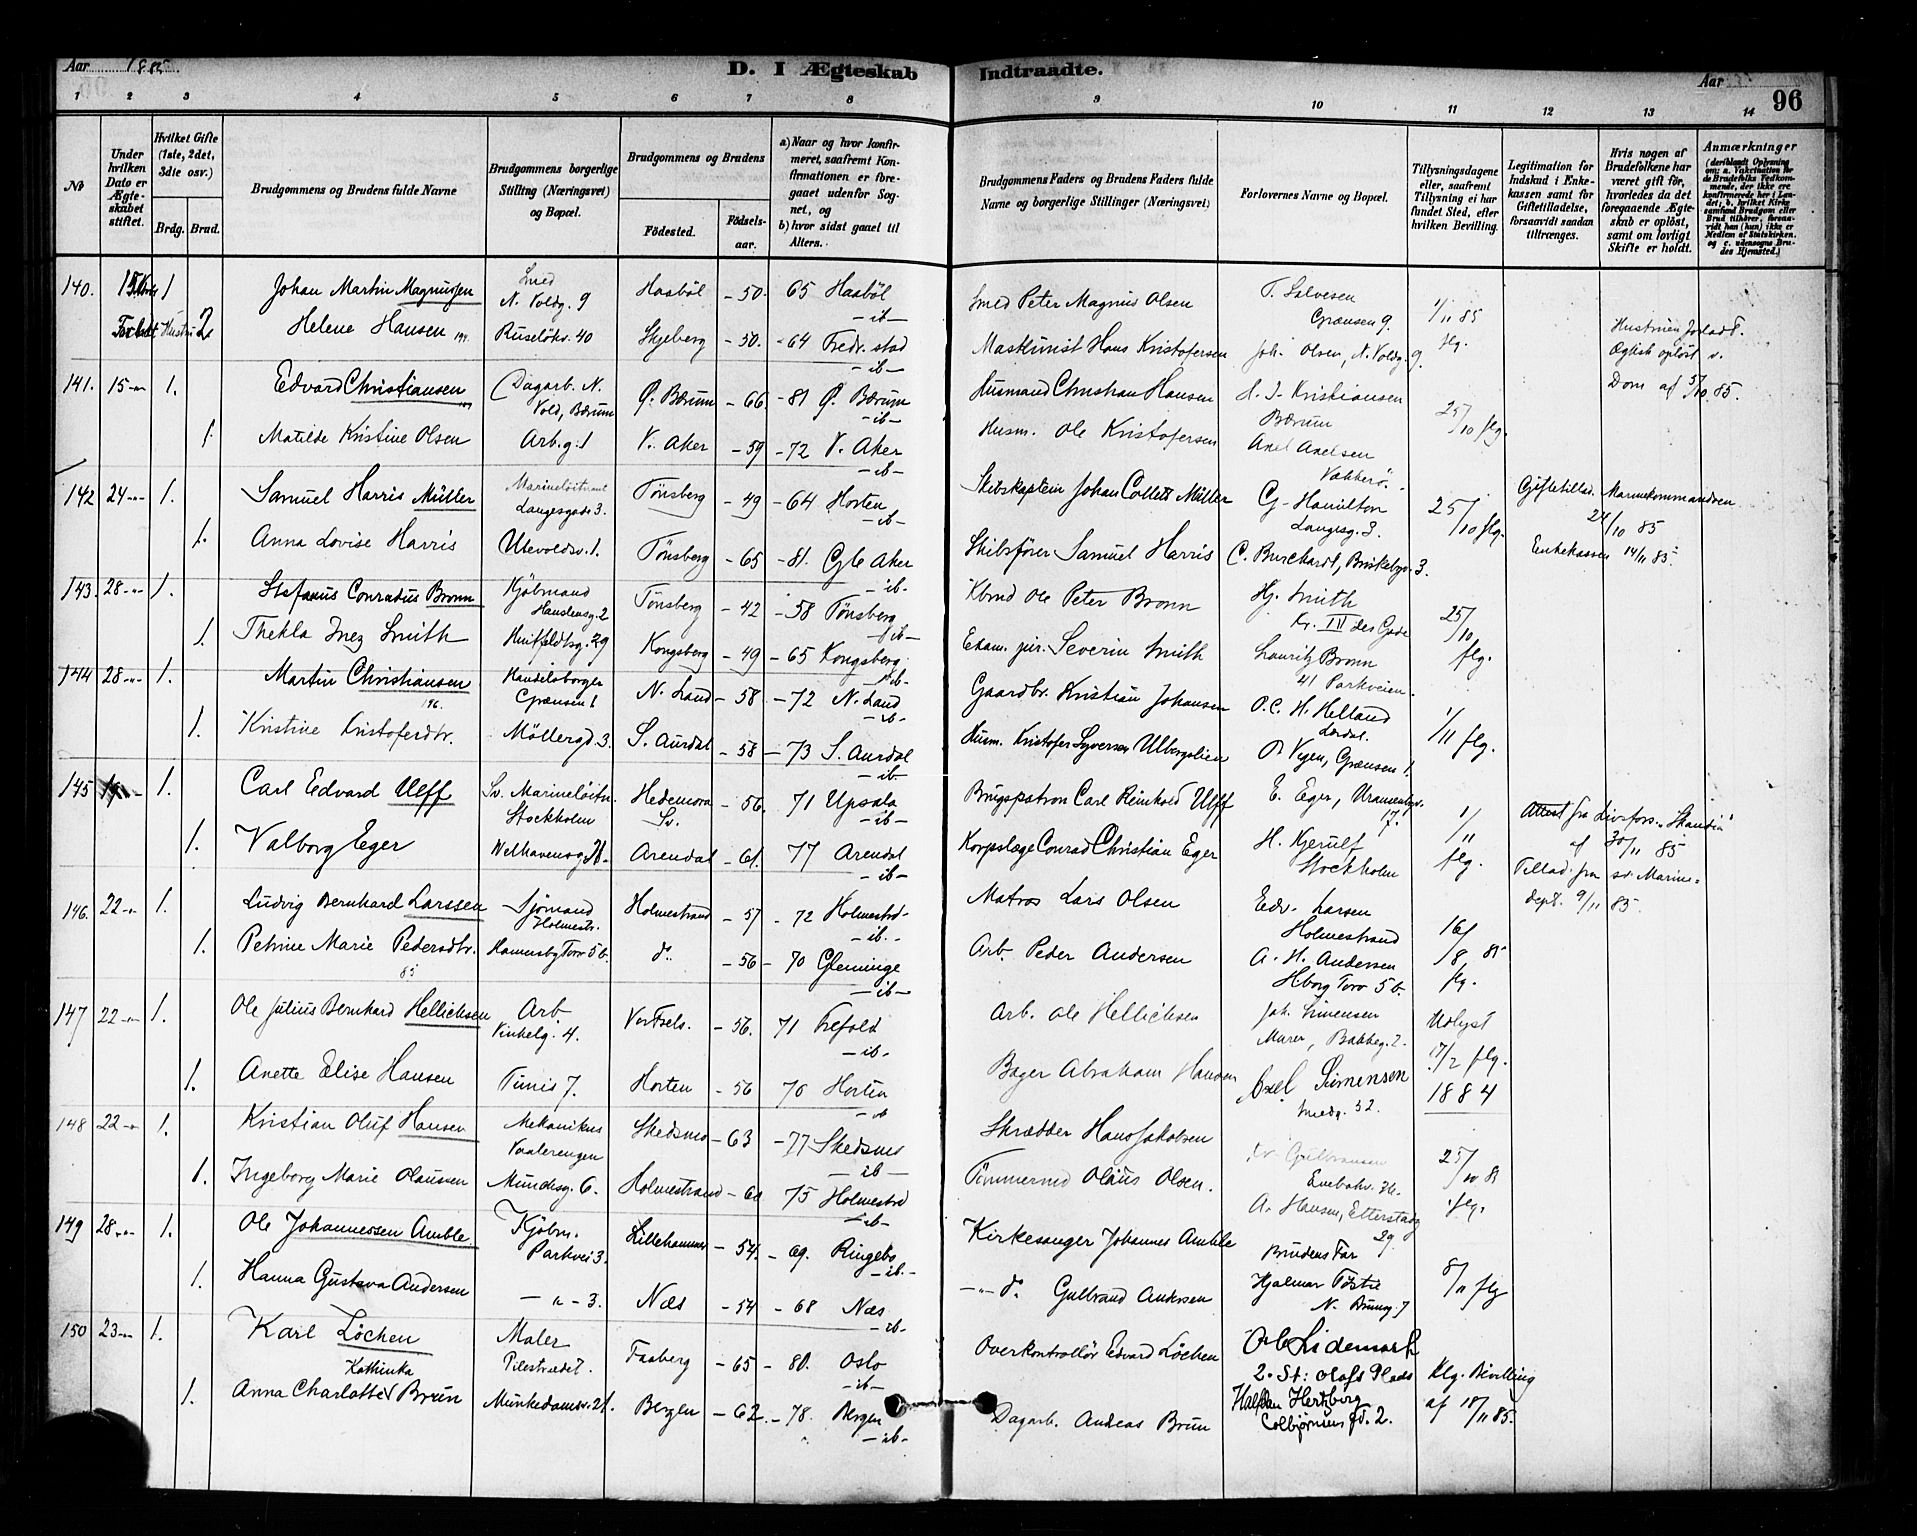 Aar 1885.
D. I Ægteskab Indtraadte.
Aar
96
1 2 3 4 5 6 7 8 9 10 11 12 13 14
No
Under hvilken Dato er Ægteskabet stiftet.
Hvilket Gifte (1ste, 2det, 3die osv.)
Brdg. Brud.
Brudgommens og Brudens fulde Navne
Brudgommens borgerlige Stilling (Næringsvei) og Bopæl.
Brudgommens og Brudens
Födested.
Födselsaar.
a) Naar og hvor konfirmeret, saafremt Konfirmationen er foregaaet udenfor Sognet, og
b) hvor sidst gaaet til Alters.
Brudgommens Faders og Brudens Faders fulde Navne og borgerlige Stillinger (Næringsvei)
Forlovernes Navne og Bopæl.
Tillysningsdagene eller, saafremt Tillysning ei har fundet Sted, efter hvilken Bevilling.
Legitimation for Indskud i Enkekassen samt for Giftetilladelse, forsaavidt saadan tiltrænges.
Hvis nogen af Brudefolkene har været gift för, hvorledes da det foregaaende Ægteskab er oplöst, samt om lovligt Skifte er holdt.
Anmærkninger
140. 1 Johan Martin Magnussen Smed N. Voldg. 9 Haaböl - 50. 65 Haaböl - ib - Smed Peter Magnus Olsen T. Salvesen Grænsen 9. 1/11 85
2 Helene Hansen Ruselökv. 40 Skjeberg - 50. - 64 Fredr.stad - ib - Maskinist Hans Kristofersen Joh. Olsen, N. Voldg. 9. flg. Hustruen forladt. Ægtesk. oplöst v. Dom af 5/10 85.
141. 15 - 1. Edvard Christiansen Dagarb. N. Vold, Bærum Ø. Bærum - 66. - 81 Ø. Bærum - ib - Husmand Christian Hansen H. J. Kristiansen Bærum 25/10 flg.
1. Matilde Kristine Olsen Arb.g. 1 V. Aker - 59 - 72 V. Aker - ib - Husm. Ole Kristofersen Axel Axelsen Vækkerö.
142 24 - 1. Samuel Harris Müller Marinelöitnant Langesgade 3. Tönsberg - 49 - 64 Horten - ib - Skibskaptein Johan Collett Müller G. Hamilton Langesg. 3. 25/10 flg. Giftetillad. Marinekommandoen 24/10 85
1. Anna Lovise Harris Ulevoldsv. 1. Tönsberg - 65 - 81. Gle Aker - ib - Skibsförer Samuel Harris C. Burchardt, Briskebyv. 3. Enkekassen 14/11 85.
143. 28 - 1. Stefanus Conradus Bronn Kjöbmand Hausmannsg. 2 Tönsberg - 42 - 58 Tönsberg - ib - Kbmd Ole Peter Bronn Hj. Smith Kr. IV des Gade 25/10 flg.
1. Thekla Inez Smith Huitfeldtsg. 29 Kongsberg - 49 - 65 Kongsberg - ib - Exam. jur. Severin Smith Lauritz Bronn 41 Parkveien.
144 28 - 1. Martin Christiansen Handelsborger Grænsen 1 N. Land - 58 - 72 N. Land - ib - Gaardbr. Kristian Johansen O. C. H. Helland Lærdal. 1/11 flg.
1. Kristine Kristofersdtr. Möllergd. 3. S. Aurdal - 58 - 73 S. Aurdal - ib - Husm. Kristofer Syversen Ulbergslien P. Vigen, Grænsen 1.
145 1. Carl Edvard Ulff Sv. Marinelöitn. Stockholm Hedemora Sv. - 56. 71 Upsala - ib - Brugspatron Carl Reinhold Ulff E. Eger, Uranienbgv. 17. 1/11 flg. Attest fra Livsfors. "Skandia" af 30/11 85
1. Valborg Eger Welhavensg. Arendal - 61. 77 Arendal - ib - Korpslæge Conrad Christian Eger H. Kjerulf Stockholm Tillad. fra sv. Marinedept. 9/11 85.
146. 22 - 1. Ludvig Bernhard Larssen Sjömand Holmestr. Holmestrand - 57 - 72 Holmestrd. - ib - Matros Lars Olsen Edv. Larsen Holmestrand 16/8 85 flg.
1. Petrine Marie Pedersdtr. Hammersbg Torv 5 b. do. - 56 - 70 Glemminge - ib - Arb. Peder Andersen A. H. Andersen Hborg Torv 5 b.
147 22 - 1. Ole Julius Bernhard Hellichsen Arb Vinkelg. 4. Vor Frels. - 56. 71 Trefold. - ib - Arb. Ole Hellichsen Joh. Simensen Murer, Bakkeg. 2. Udlyst 17/2 flg. 1884
1. Anette Elise Hansen Timis 7. Horten - 56 70 Horten - ib Bager Abraham Hansen Axel Simensen Smedg. 32.
148 22 - 1. Kristian Oluf Hansen Mekanikus Vaalerengen Skedsmo - 63 - 77 Skedsmo - ib - Skrædder Hans Jakobsen Gulbransen Enebakv. 25/10 85 flg.
1. Ingeborg Marie Olaussen Mundesg. 6. Holmestrand - 60 75 Holmestrd - ib - Tömmermd Olaus Olsen. A. Hansen, Etterstadg 29.
149 28 - 1. Ole Johannessen Amble Kjöbm. Parkvei 3. Lillehammer - 54. - 69. Ringebo - ib - Kirkesanger Johannes Amble Brudens Far 8/11 flg
1. Hanna Gustava Andersen - " - 3. Næs - 54 - 68 Næs - ib - - " - do. Gulbrand Andersen Hjalmar Töstie N. Brung. 7
150 23 - 1. Karl Löchen Maler Pilestrædet 7. Faaberg - 65 - 80. Oslo - ib - Overkontrollör Edvard Löchen Ole Lidemark 2. St: Olafs Plads Klg. Bevilling
1. Anna Charlotte Kathinka Brun Munkedamsv. 21. Bergen - 62. - 78. Bergen - ib - Dagarb. Andreas Brun Halfdan Hertzberg Colbjörnens gd. 2. af 18/11 85.